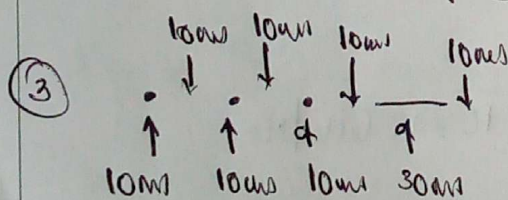 10ms 10ms 10ms 10ms
3
10ms 10ms 10ms 30ms